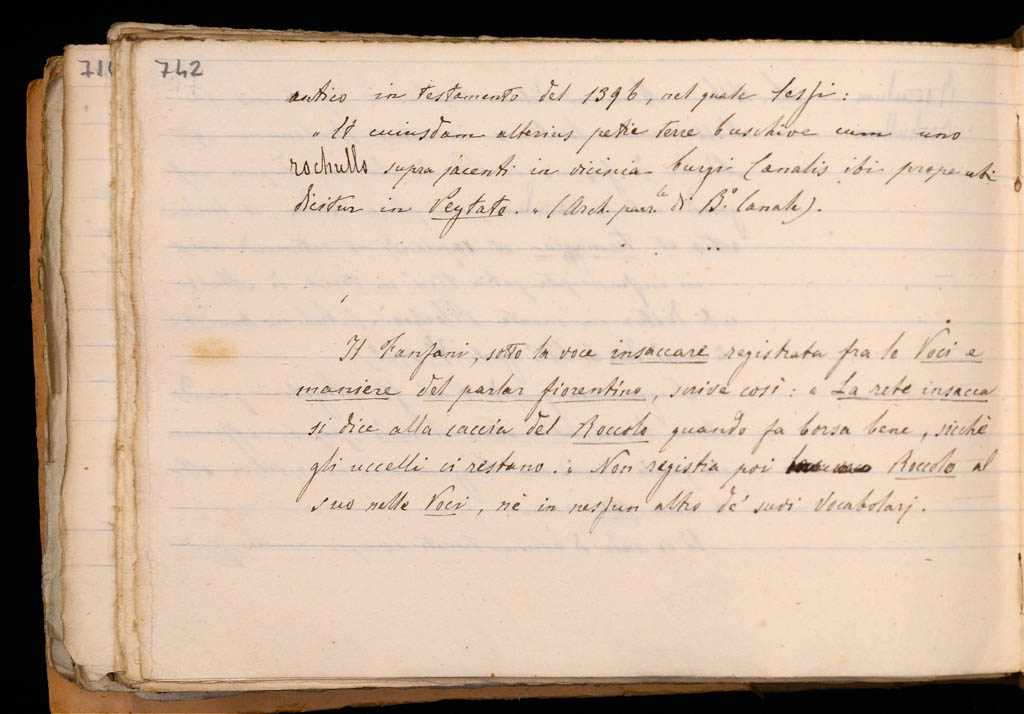 71
742
antico in testamento del 1396, nel quale lessi:
" Et cuiusdam alterius petie terre buschive cum uno
rochullo supra jacenti in vicinia burgi Canalis ibi prope ubi
dicitur in Veytato. " (Arch. parr.le di B.o Canale).
Il Fanfani, sotto la voce insaccare registrata fra le Voci e
maniere del parlar fiorentino, scrive così: « La rete insacca
si dice alla caccia del Roccolo quando fa borsa bene, sicchè
gli uccelli ci restano. » Non registra poi Roccolo al
suo nelle Voci, nè in nessun altro de' suoi Vocabolarj.